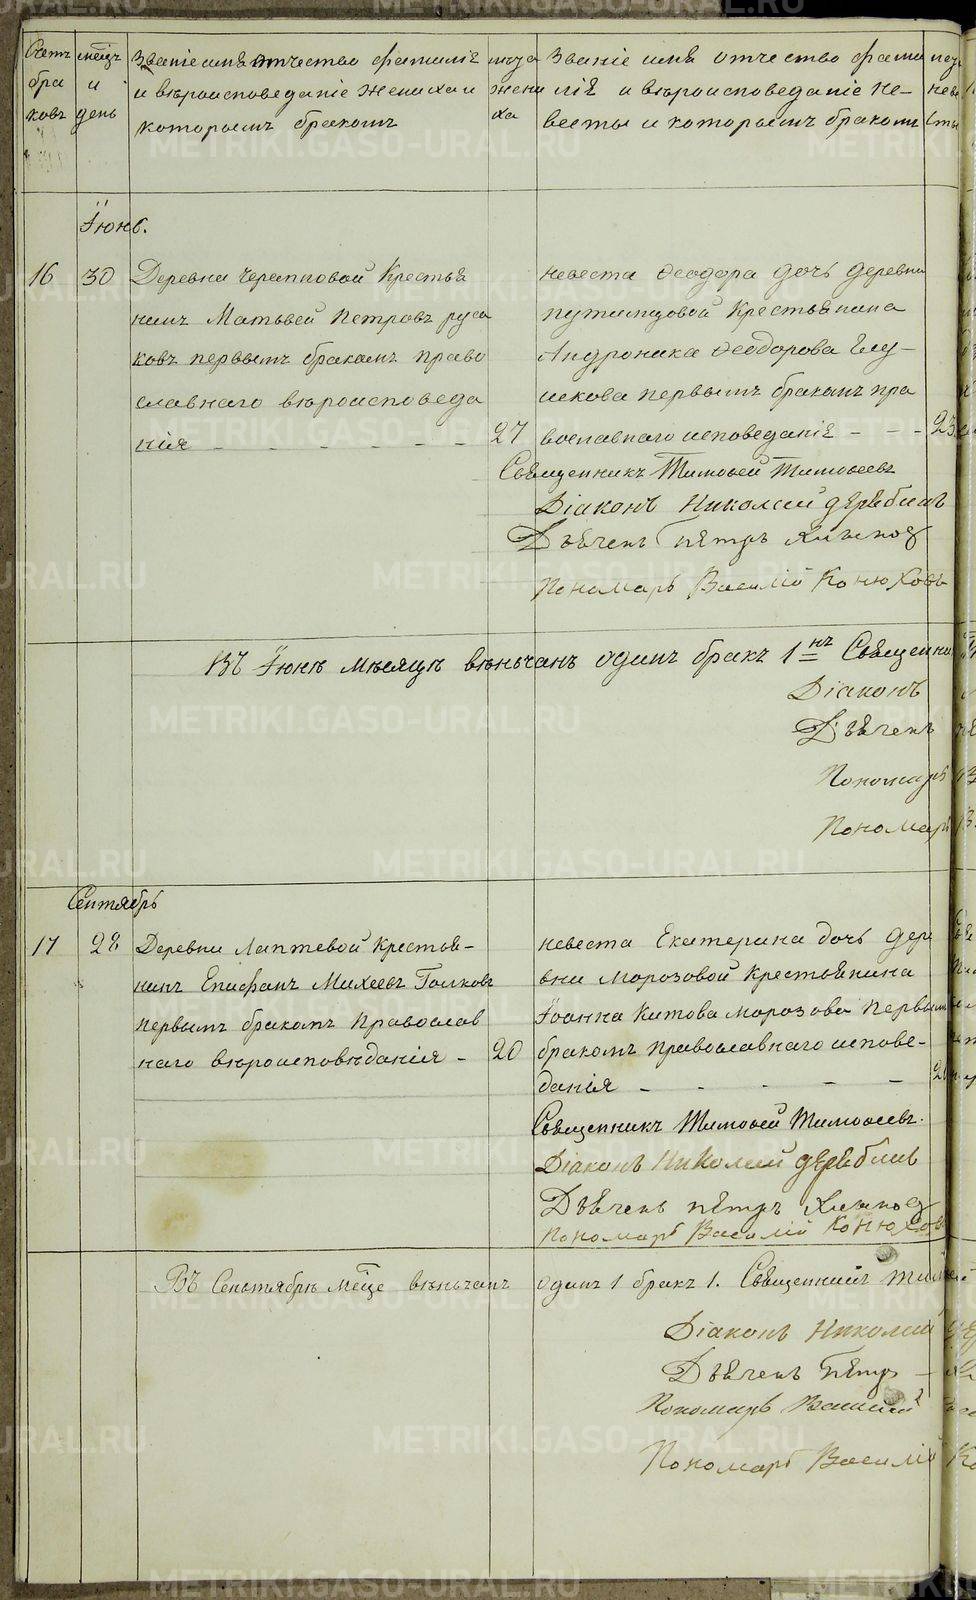 Счетъ бра ковъ
мѣсцъ и день
Званіе имя отчество фамиліе
и вѣроисповеданіе жениха и
которымъ бракомъ
лѣта жени ха
Званіе имя отчество фами
ліе и вѣроисповеданіе не-
весты и которымъ бракомъ
невѣ сты
Іюнь.
16 30 Деревни Черепповой Крестья
нинъ Матвей Петровъ руса
ковъ первымъ бракомъ право
славнаго вѣроисповеда
нія - - - - - - 27
невеста Ѳеодора дочь деревни
путимцовой Крестьянина
Андроника Ѳеодорова Глу-
шкова первымъ бракомъ пра
вославнаго исповеданія - - - 23
Священникъ Тимоѳей Тимоѳеевъ
Діаконъ Николай дерябинъ
Дьячекъ петръ
Пономарь Василій Конюховъ
Въ Іюнѣ мѣсяцѣ вѣньчанъ одинъ бракъ 1нъ Священни
Діаконъ
Дьячекъ
Пономарь
Пономарь
Сентябрь
17 28 Деревни Лаптевой Крестья-
нинъ Епифанъ Михеевъ Голковъ
первымъ бракомъ Православ
наго вѣроисповѣданія - 20
невеста Екатерина дочь дере
вни Морозовой Крестьянина
Іоанна Китова Морозова Первымъ
бракомъ Православнаго испове-
данія - - - - - 20
Священникъ Тимоѳей Тимоѳеевъ.
Діаконъ Николай дерябинъ
Дьячекъ петръ
пономарь Василій Конюховъ
Въ Сентябрѣ мѣсце вѣньчанъ одинъ 1 бракъ 1. Священникъ Тимоѳей
Діаконъ Николай
Дьячекъ петръ
Пономарь Василий
Пономарь Василій
METRIKI.GASO-URAL.RU